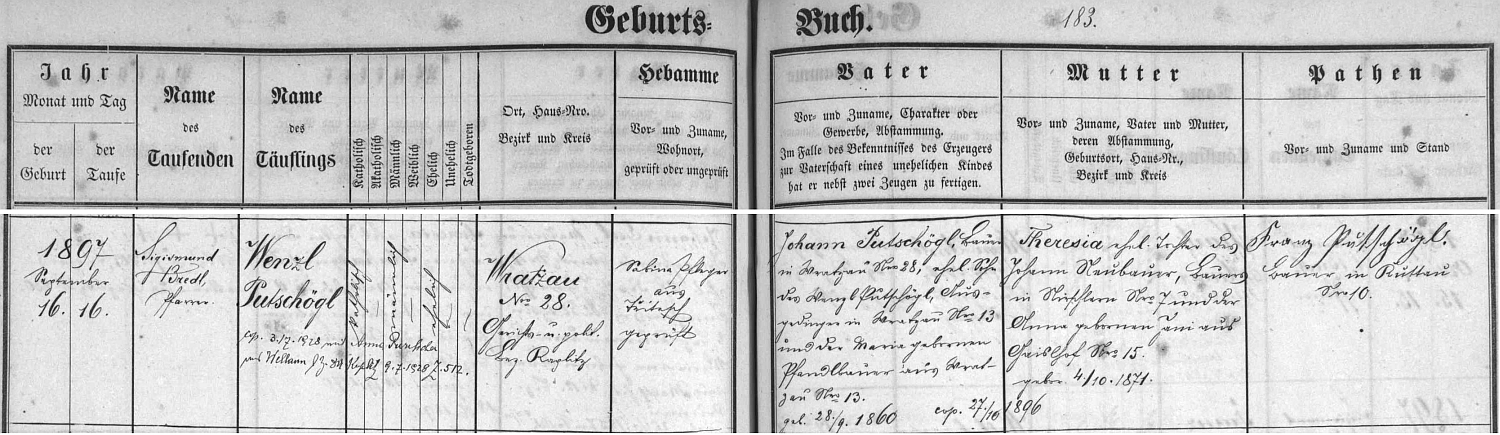 Geburts-Buch.
183.
Jahr
Monat und Tag
der Geburt
der Taufe
Name
des
Taufenden
Name
des
Täuflings
Katholisch
Akatholisch
Männlich
Weiblich
Ehelich
Unehelich
Todtgeboren
Ort, Haus-Nro.
Bezirk und Kreis
Hebamme
Vor- und Zuname,
Wohnort,
geprüft oder ungeprüft
Vater
Vor- und Zuname, Charakter oder
Gewerbe, Abstammung.
Im Falle des Bekenntnisses des Erzeugers
zur Vaterschaft eines unehelichen Kindes
hat er nebst zwei Zeugen zu fertigen.
Mutter
Vor- und Zuname, Vater und Mutter,
deren Abstammung,
Geburtsort, Haus-Nr.,
Bezirk und Kreis
Pathen
Vor- und Zuname und Stand
1897
September
16. 16.
Sigismund
Bredl,
Pfarrer.
Wenzl
Putschögl
cop. 3./7. 1928 mit Anna
9.7.1928 Z. 512.
katholisch
männlich
—
ehelich
Wratzau
Nro 28.
Gerichts- u. polit.
Bez. Kaplitz
Sabina Pfleger
aus
Tritesch
geprüft
Johann Putschögl, Bauer
in Wratzau Nro 28, ehel. Sohn
des Wenzl Putschögl, Aus-
gedinger in Wratzau Nro 13
und der Maria gebornen
Pfandlbauer aus Wrat-
zau Nro 13.
geb. 28/9. 1860 cop. 27/10 1896
Theresia ehel. Tochter des
Johann Neubauer, Bauers
in Nro 7 und der
Anna gebornen Jani aus
Gaishof Nro 15.
gebor. 4/10. 1871.
Franz Putschögl,
Bauer in Kuttau
Nro 10.